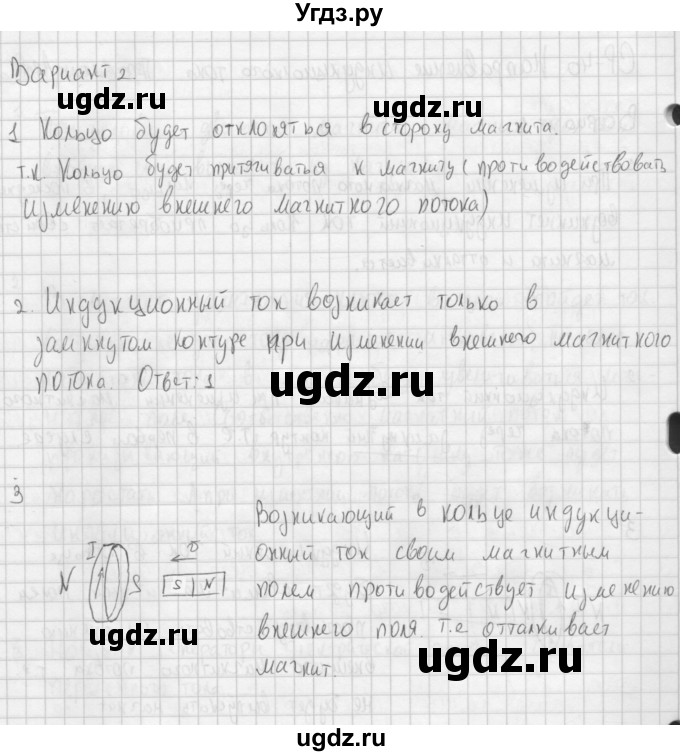 Угдз.ру
Вариант 2
ugdz.ru
ugdz.ru
1 Кольцо будет отклоняться в сторону магнита.
т.к Кольцо будет притягиваться к магниту (противодействовать
изменению внешнего магнитного потока)
2. Индукционный ток возникает только в
замкнутом контуре при изменении внешнего магнитного
потока. Ответ: 1
ugdz.ru
3
Возникающий в кольце индукци-
онный ток своим магнитным
полем противодействует изменению
внешнего поля. Т.е отталкивает
магнит.
I
N
S
S N
ugdz.ru
ugdz.ru
ugdz.ru